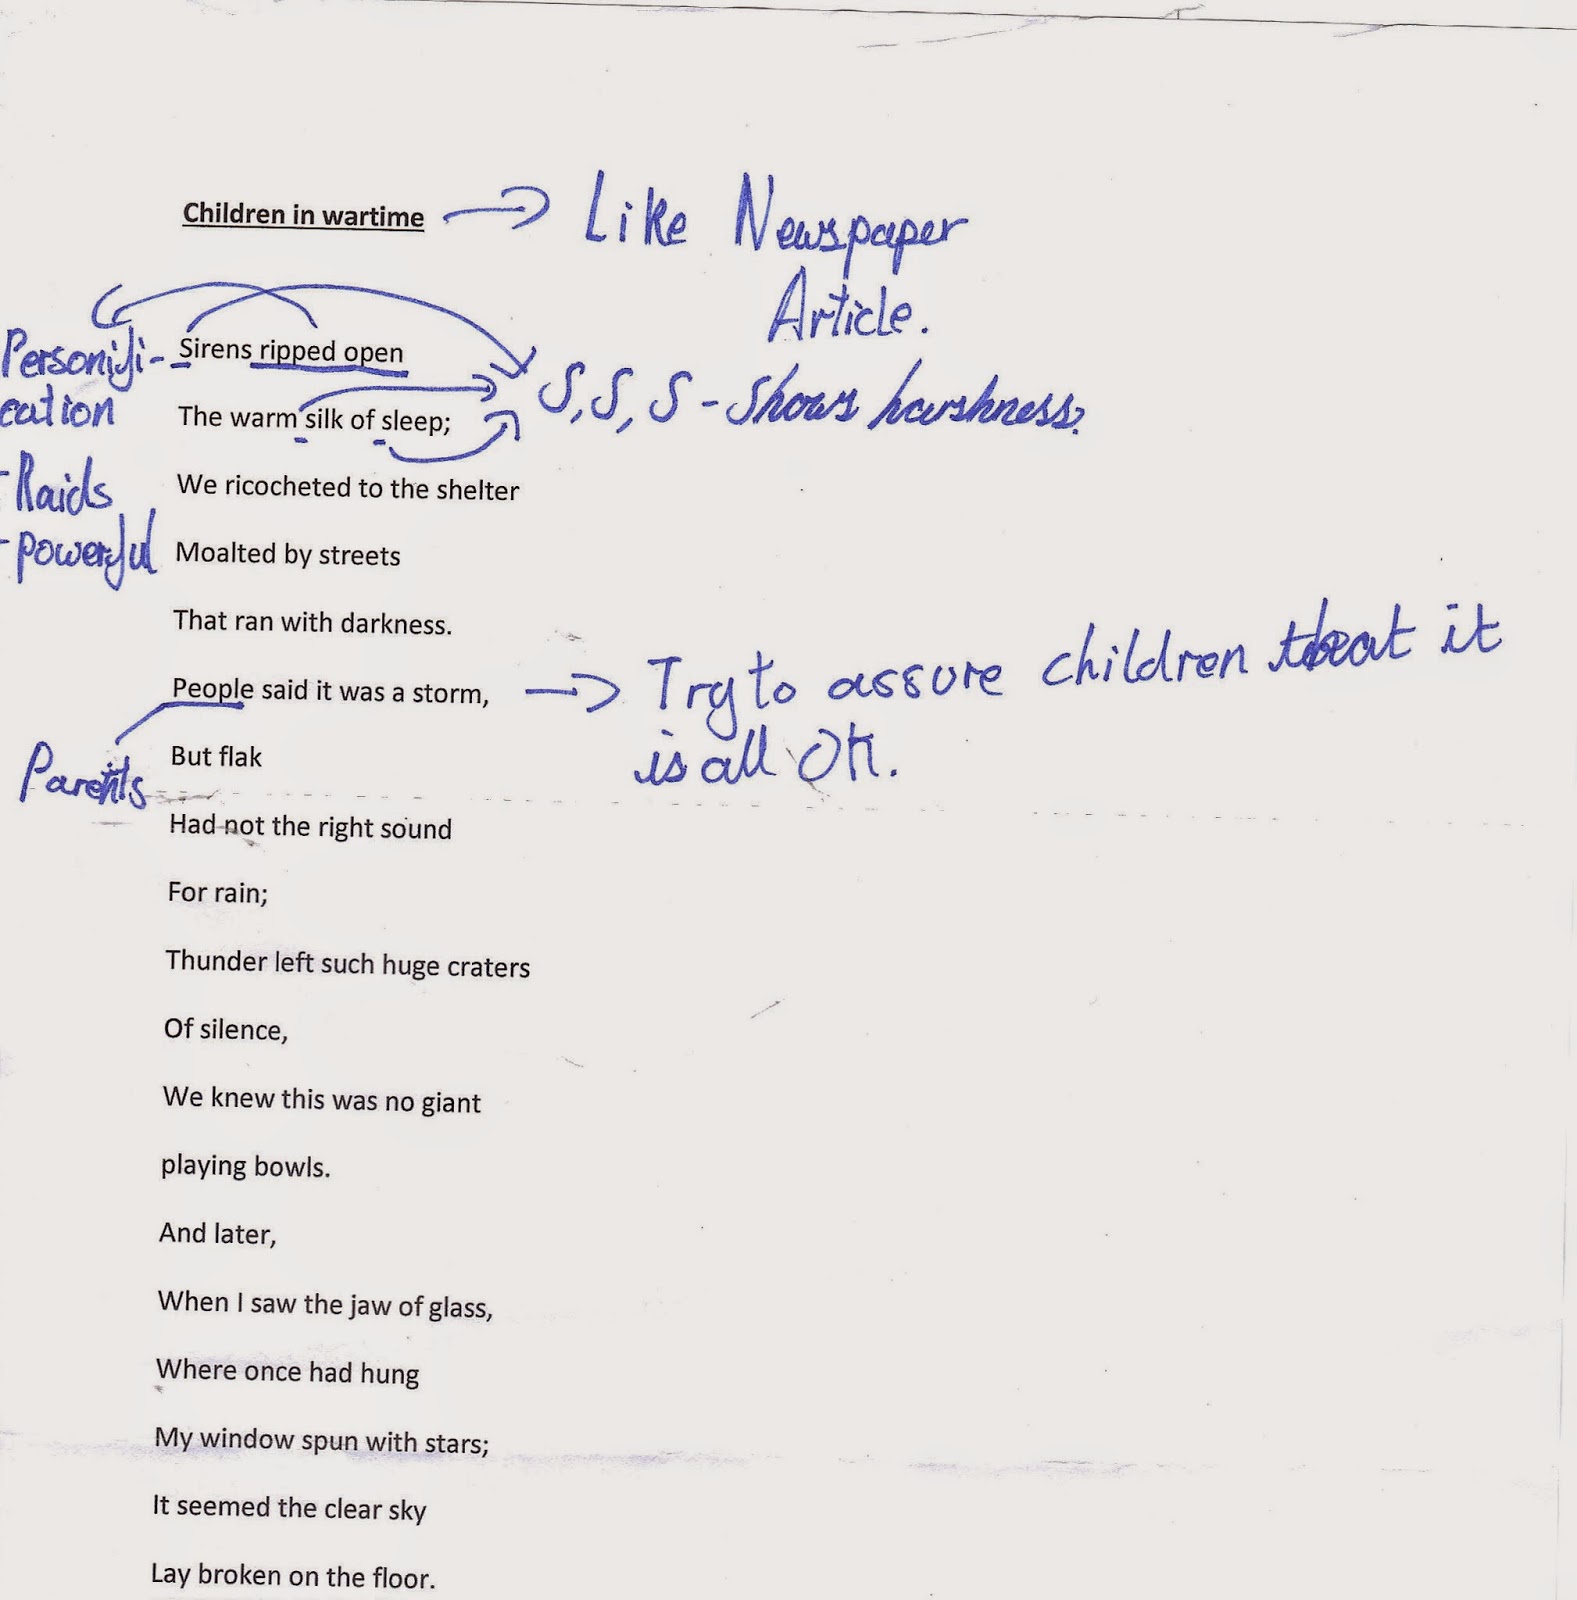 Children in wartime
Like Newspaper
Article.
Personifi-
cation
- Raids
- powerful
Sirens ripped open
The warm silk of sleep;
S, S, S - Shows harshness.
We ricocheted to the shelter
Moalted by streets
That ran with darkness.
People said it was a storm,
Try to assure children that it
is all OK.
Parents
But flak
Had not the right sound
For rain;
Thunder left such huge craters
Of silence,
We knew this was no giant
playing bowls.
And later,
When I saw the jaw of glass,
Where once had hung
My window spun with stars;
It seemed the clear sky
Lay broken on the floor.